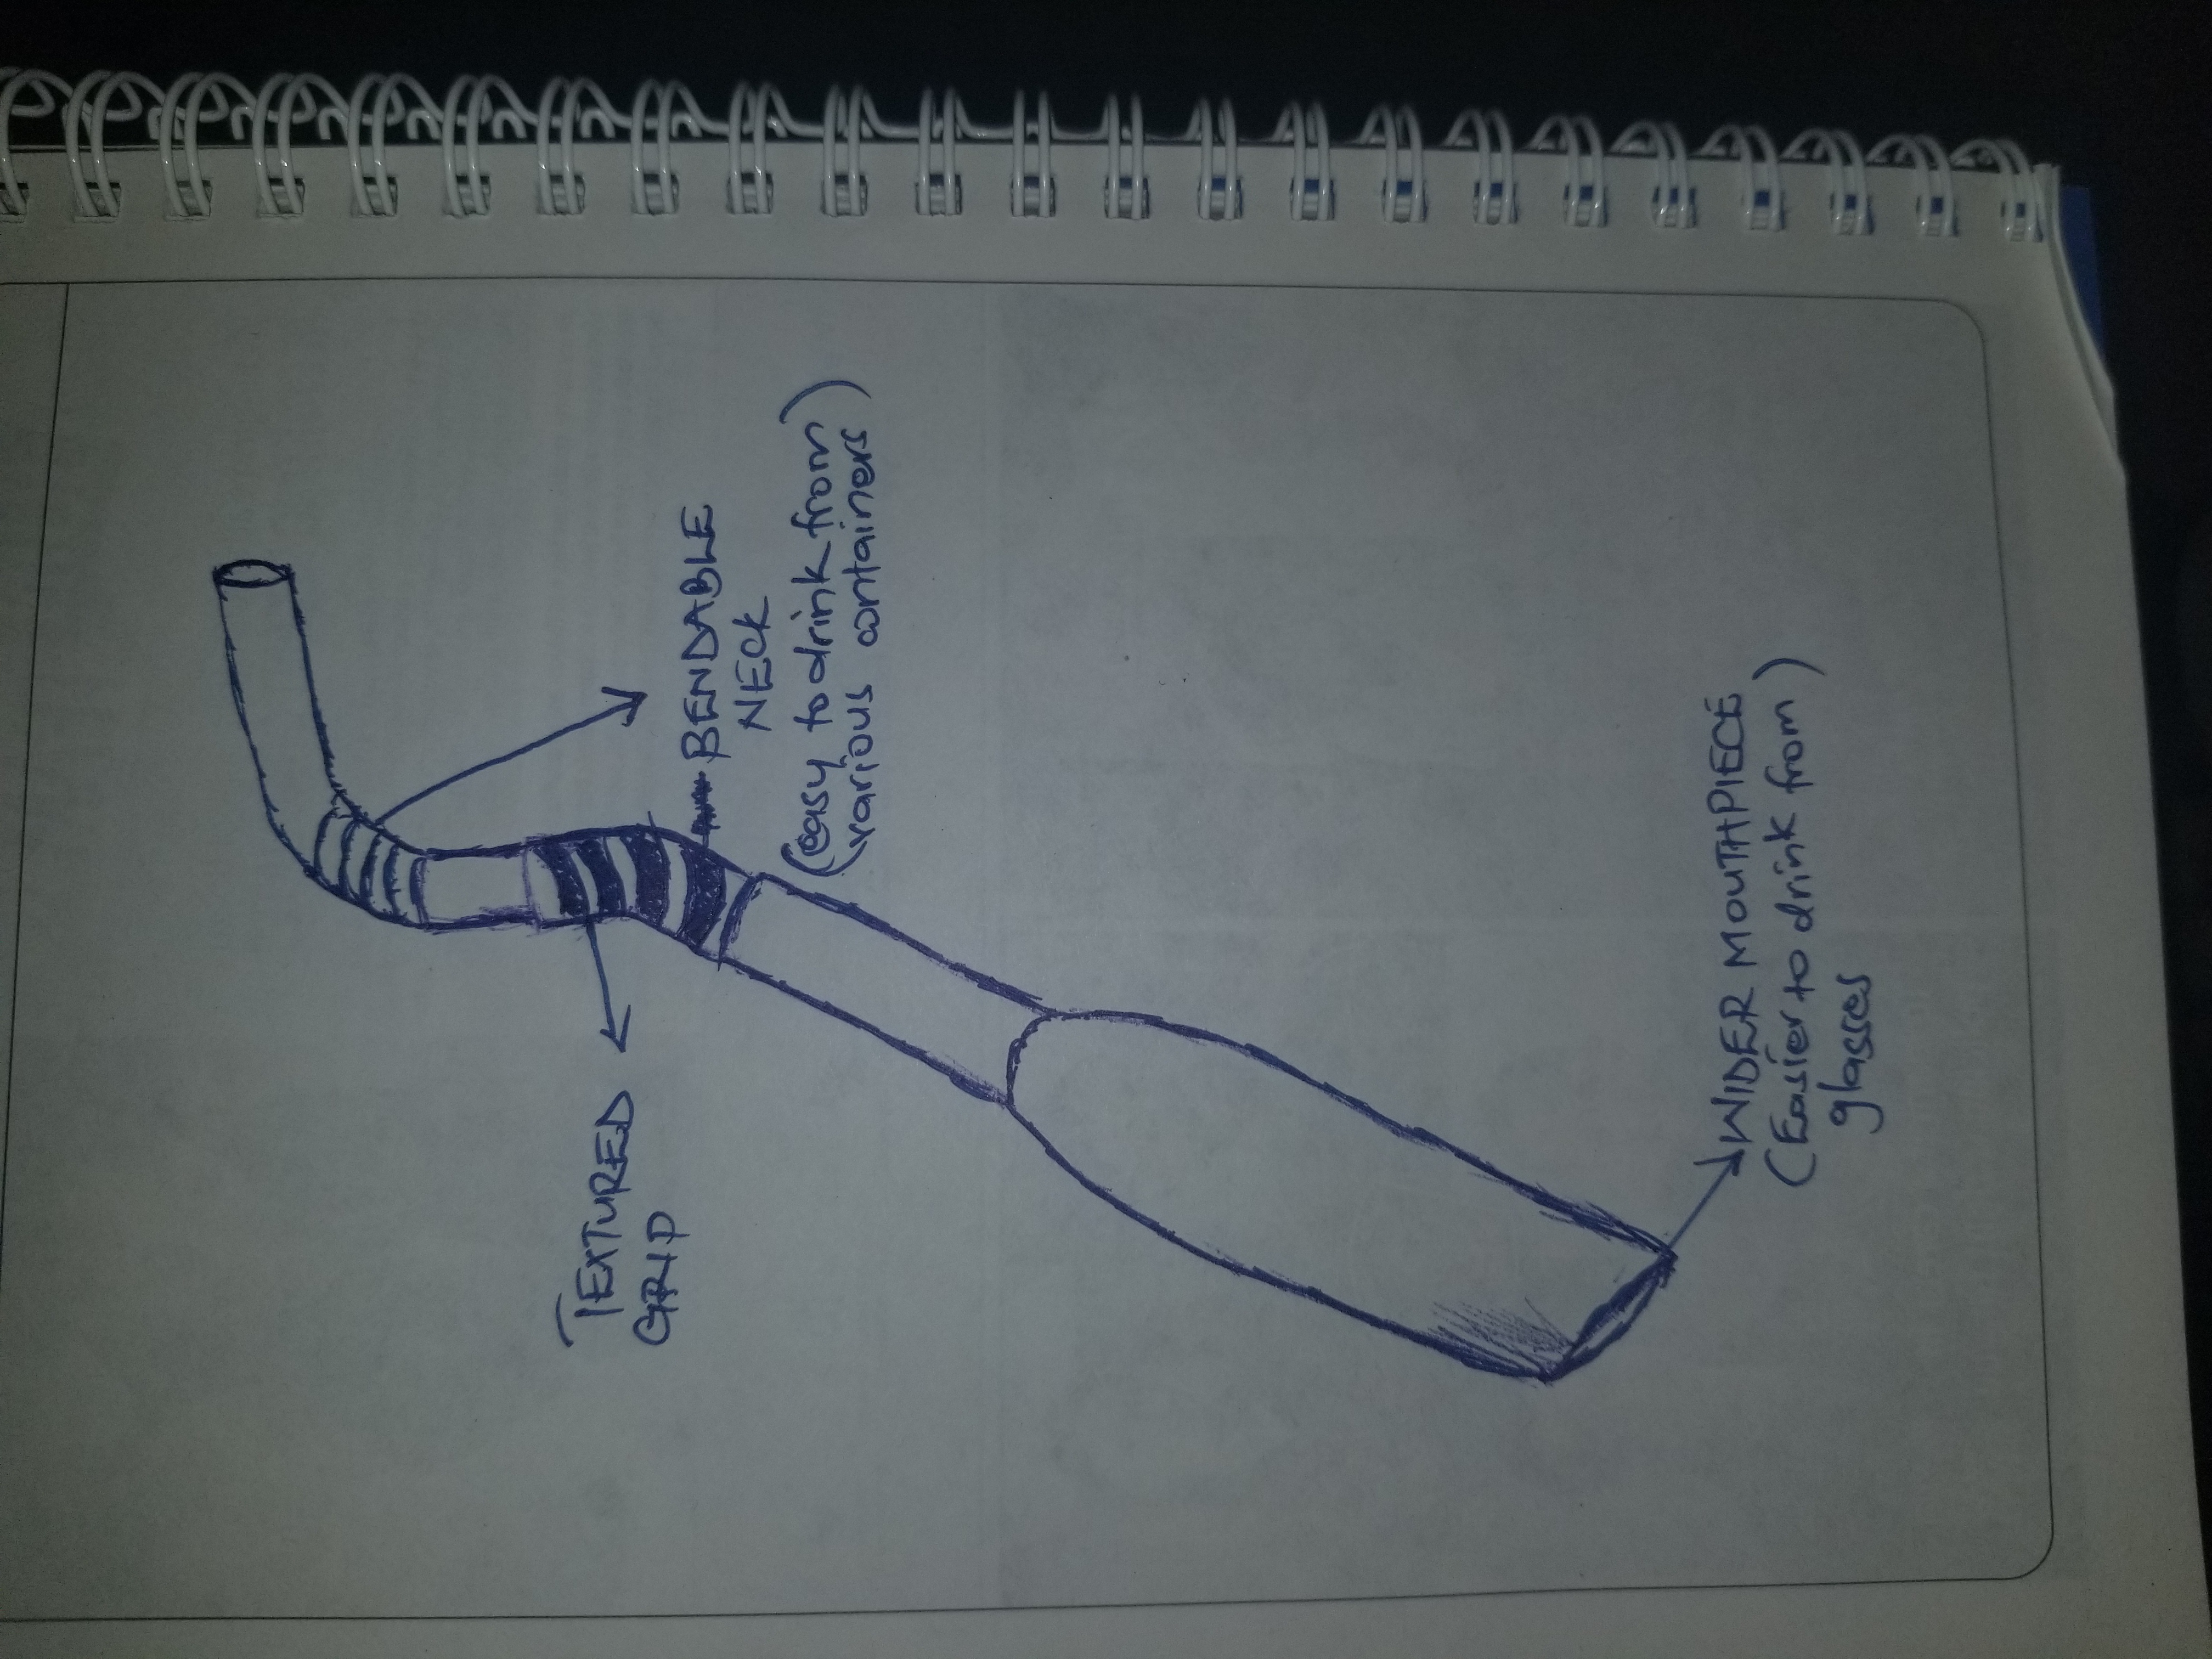 TEXTURED
GRIP
BENDABLE
NECK
(easy to drink from)
(various containers)
WIDER MOUTHPIECE
(Easier to drink from)
glasses